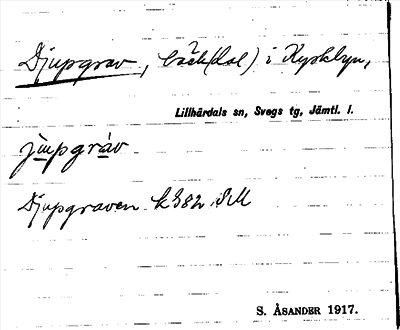 Djupgrav, bäck(dal) i Kyrkbyn,
Lillhärdals sn, Svegs tg, Jämtl. l.
jupgrav
Djupgraven k 382 SM
S. ÅSANDER 1917.